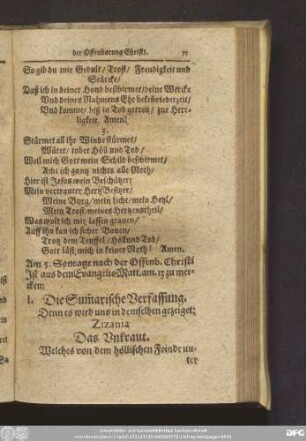 der Offenbarung Christi. 77
So gib du mir Gedult / Trost / Freudigkeit und
Stärcke /
Daß ich in deiner Hand beschirmet / deine Wercke
Und deines Nahmens Ehr bekenne iederzeit /
Und komme / biß in Tod getreu / zur Herr-
ligkeit. Amen!
3.
Stürmet all ihr Winde stürmet /
Wütet / tobet Höll und Tod /
Weil mich Gott mein Schild beschirmet /
Acht ich gantz nichts alle Noth /
Hier ist Jesus mein Beschützer;
Mein vertrauter Hertz Besitzer /
Meine Burg / mein Licht / mein Heyl /
Mein Trost / meines Hertzens theil /
Was wolt ich mir lassen grauen /
Auff ihn kan ich sicher Bauen /
Trotz dem Teuffel / Höll und Tod /
Gott läst mich in keiner Noth! Amen.
Am 5. Sontage nach der Offenb. Christi
Ist aus dem Evangelio Matt. am 13 zu mer-
cken:
I. Die Sum̃arische Verfassung.
Denn es wird uns in demselben gezeiget:
Zizania
Das Vnkraut.
Welches von dem höllischen Feinde un-
ter